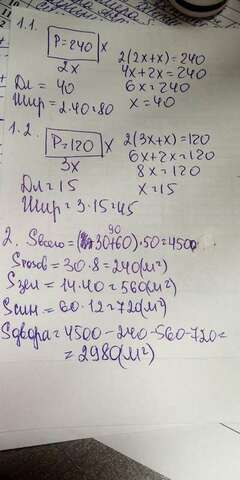 1.1.
P=240 x 2(2x+x)=240
2x 4x+2x=240
6x=240
Дл = 40 x=40
Шир = 2·40=80
1.2.
P=120 x 2(3x+x)=120
3x 6x+2x=120
8x=120
Дл=15 x=15
Шир = 3·15=45
90
2. Sвсего=(30+60)·50=4500
Sголуб=30·8=240(м²)
Sзел=14·40=560(м²)
Sсин=60·12=720(м²)
Sдвора=4500-240-560-720=
=2980(м²)